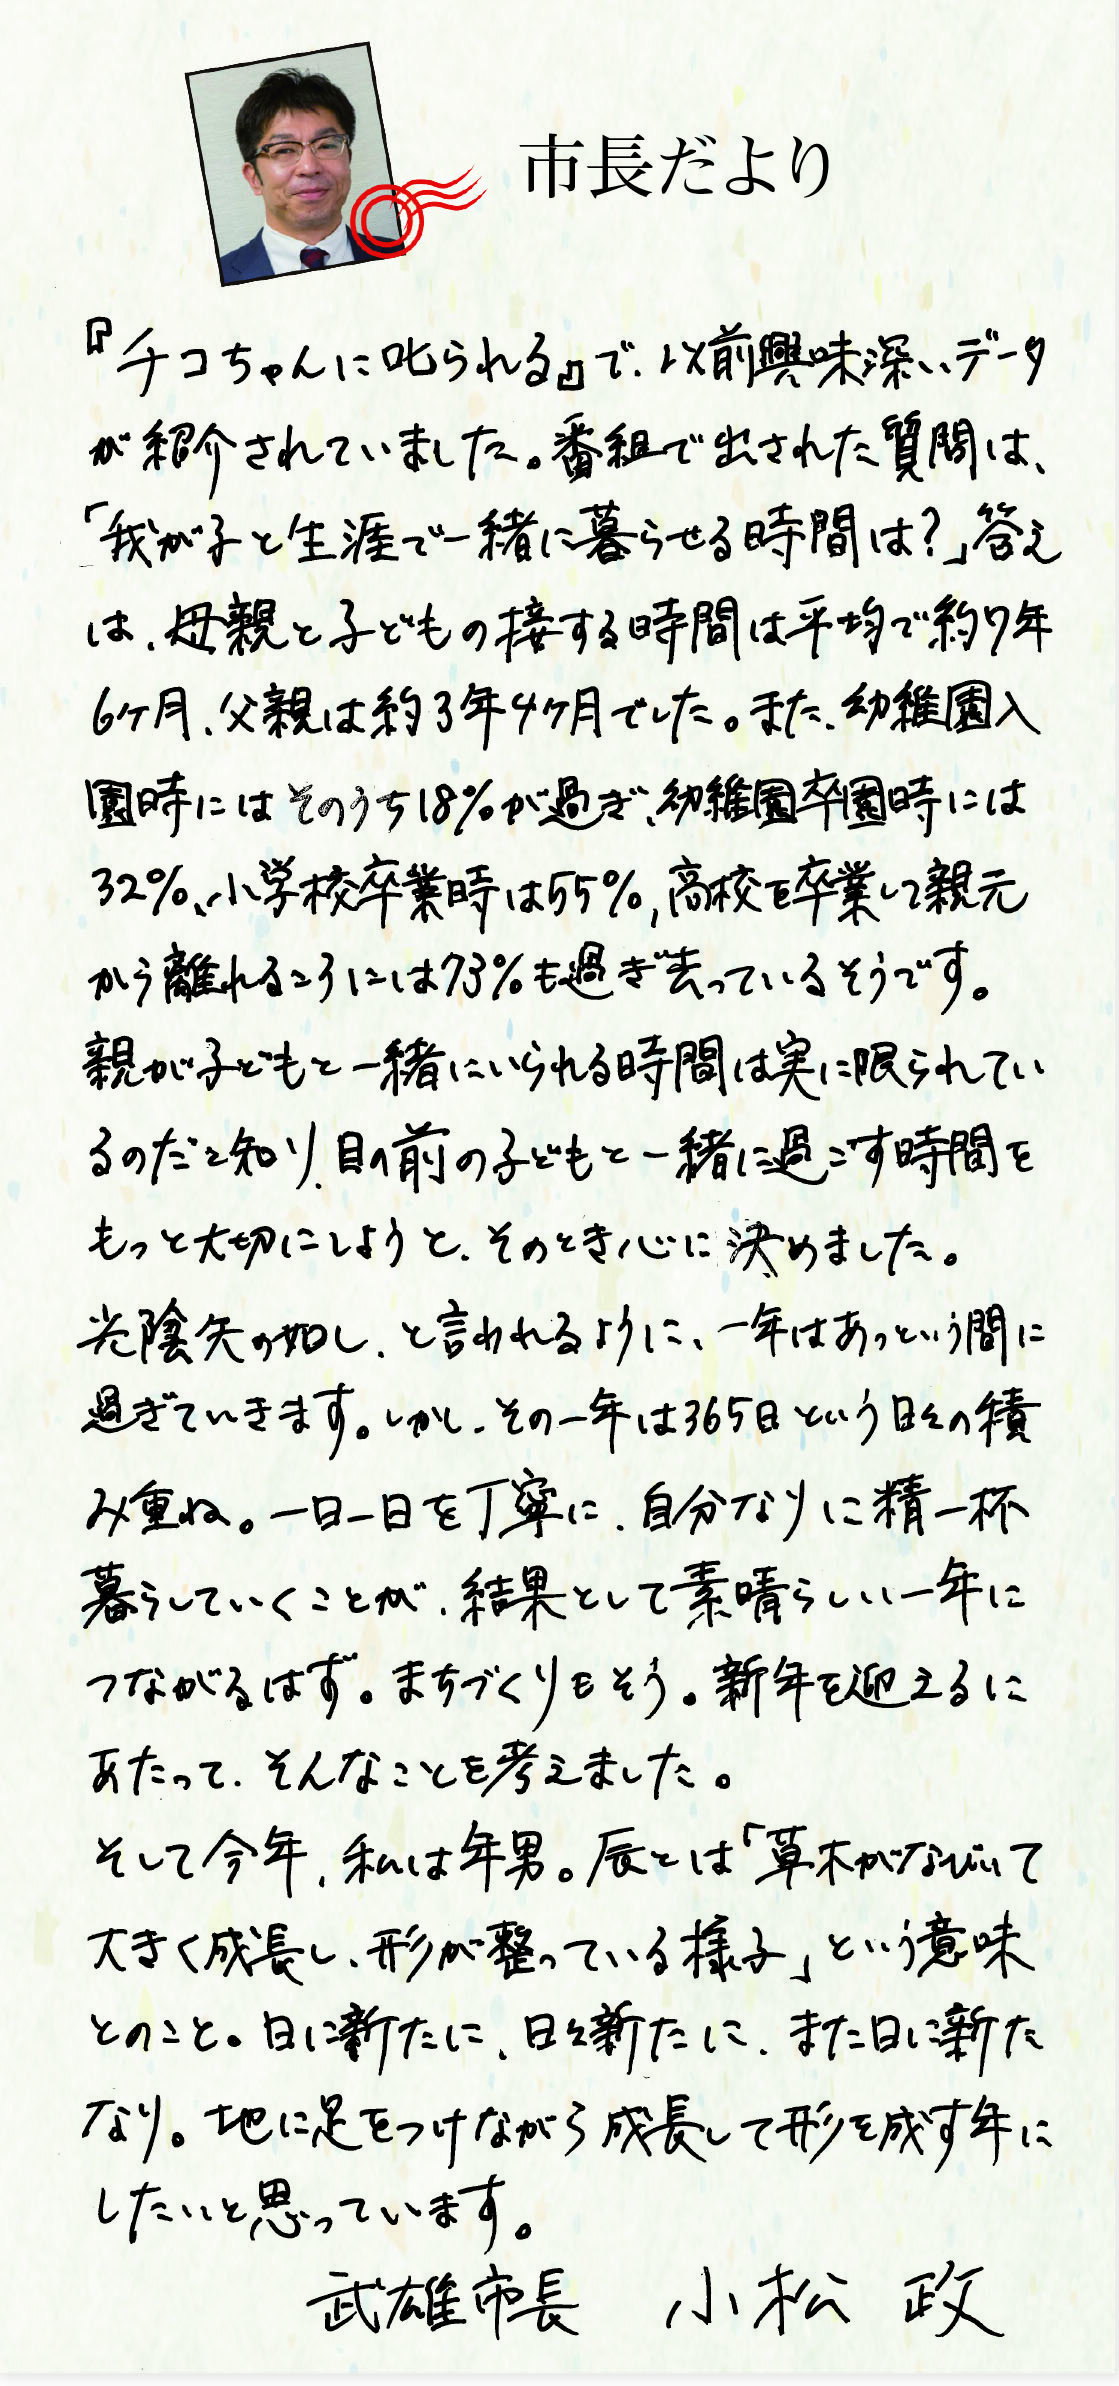 市長だより
『チコちゃんに叱られる』で、以前興味深いデータ
が紹介されていました。番組で出された質問は、
「我が子と生涯で一緒に暮らせる時間は?」答え
は、母親と子どもの接する時間は平均で約7年
6ヶ月、父親は約3年4ヶ月でした。また、幼稚園入
園時にはそのうち18%が過ぎ、幼稚園卒園時には
32%、小学校卒業時は55%、高校を卒業して親元
から離れるころには73%も過ぎ去っているそうです。
親が子どもと一緒にいられる時間は実に限られてい
るのだと知り、目の前の子どもと一緒に過ごす時間を
もっと大切にしようと、そのとき心に決めました。
光陰矢の如し、と言われるように、一年はあっという間に
過ぎていきます。しかし、その一年は365日という日々の積
み重ね。一日一日を丁寧に、自分なりに精一杯
暮らしていくことが、結果として素晴らしい一年に
つながるはず。まちづくりもそう。新年を迎えるに
あたって、そんなことを考えました。
そして今年、私は年男。辰とは「草木がなびいて
大きく成長し、形が整っている様子」という意味
とのこと。日に新たに、日々新たに、また日に新た
なり。地に足をつけながら成長して形を成す年に
したいと思っています。
武雄市長 小松 政